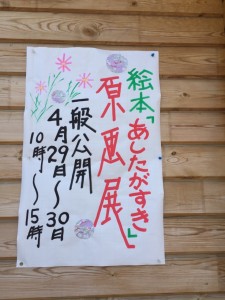 絵本「あしたがすき」
原画展
一般公開
4月29日〜30日
10時〜15時